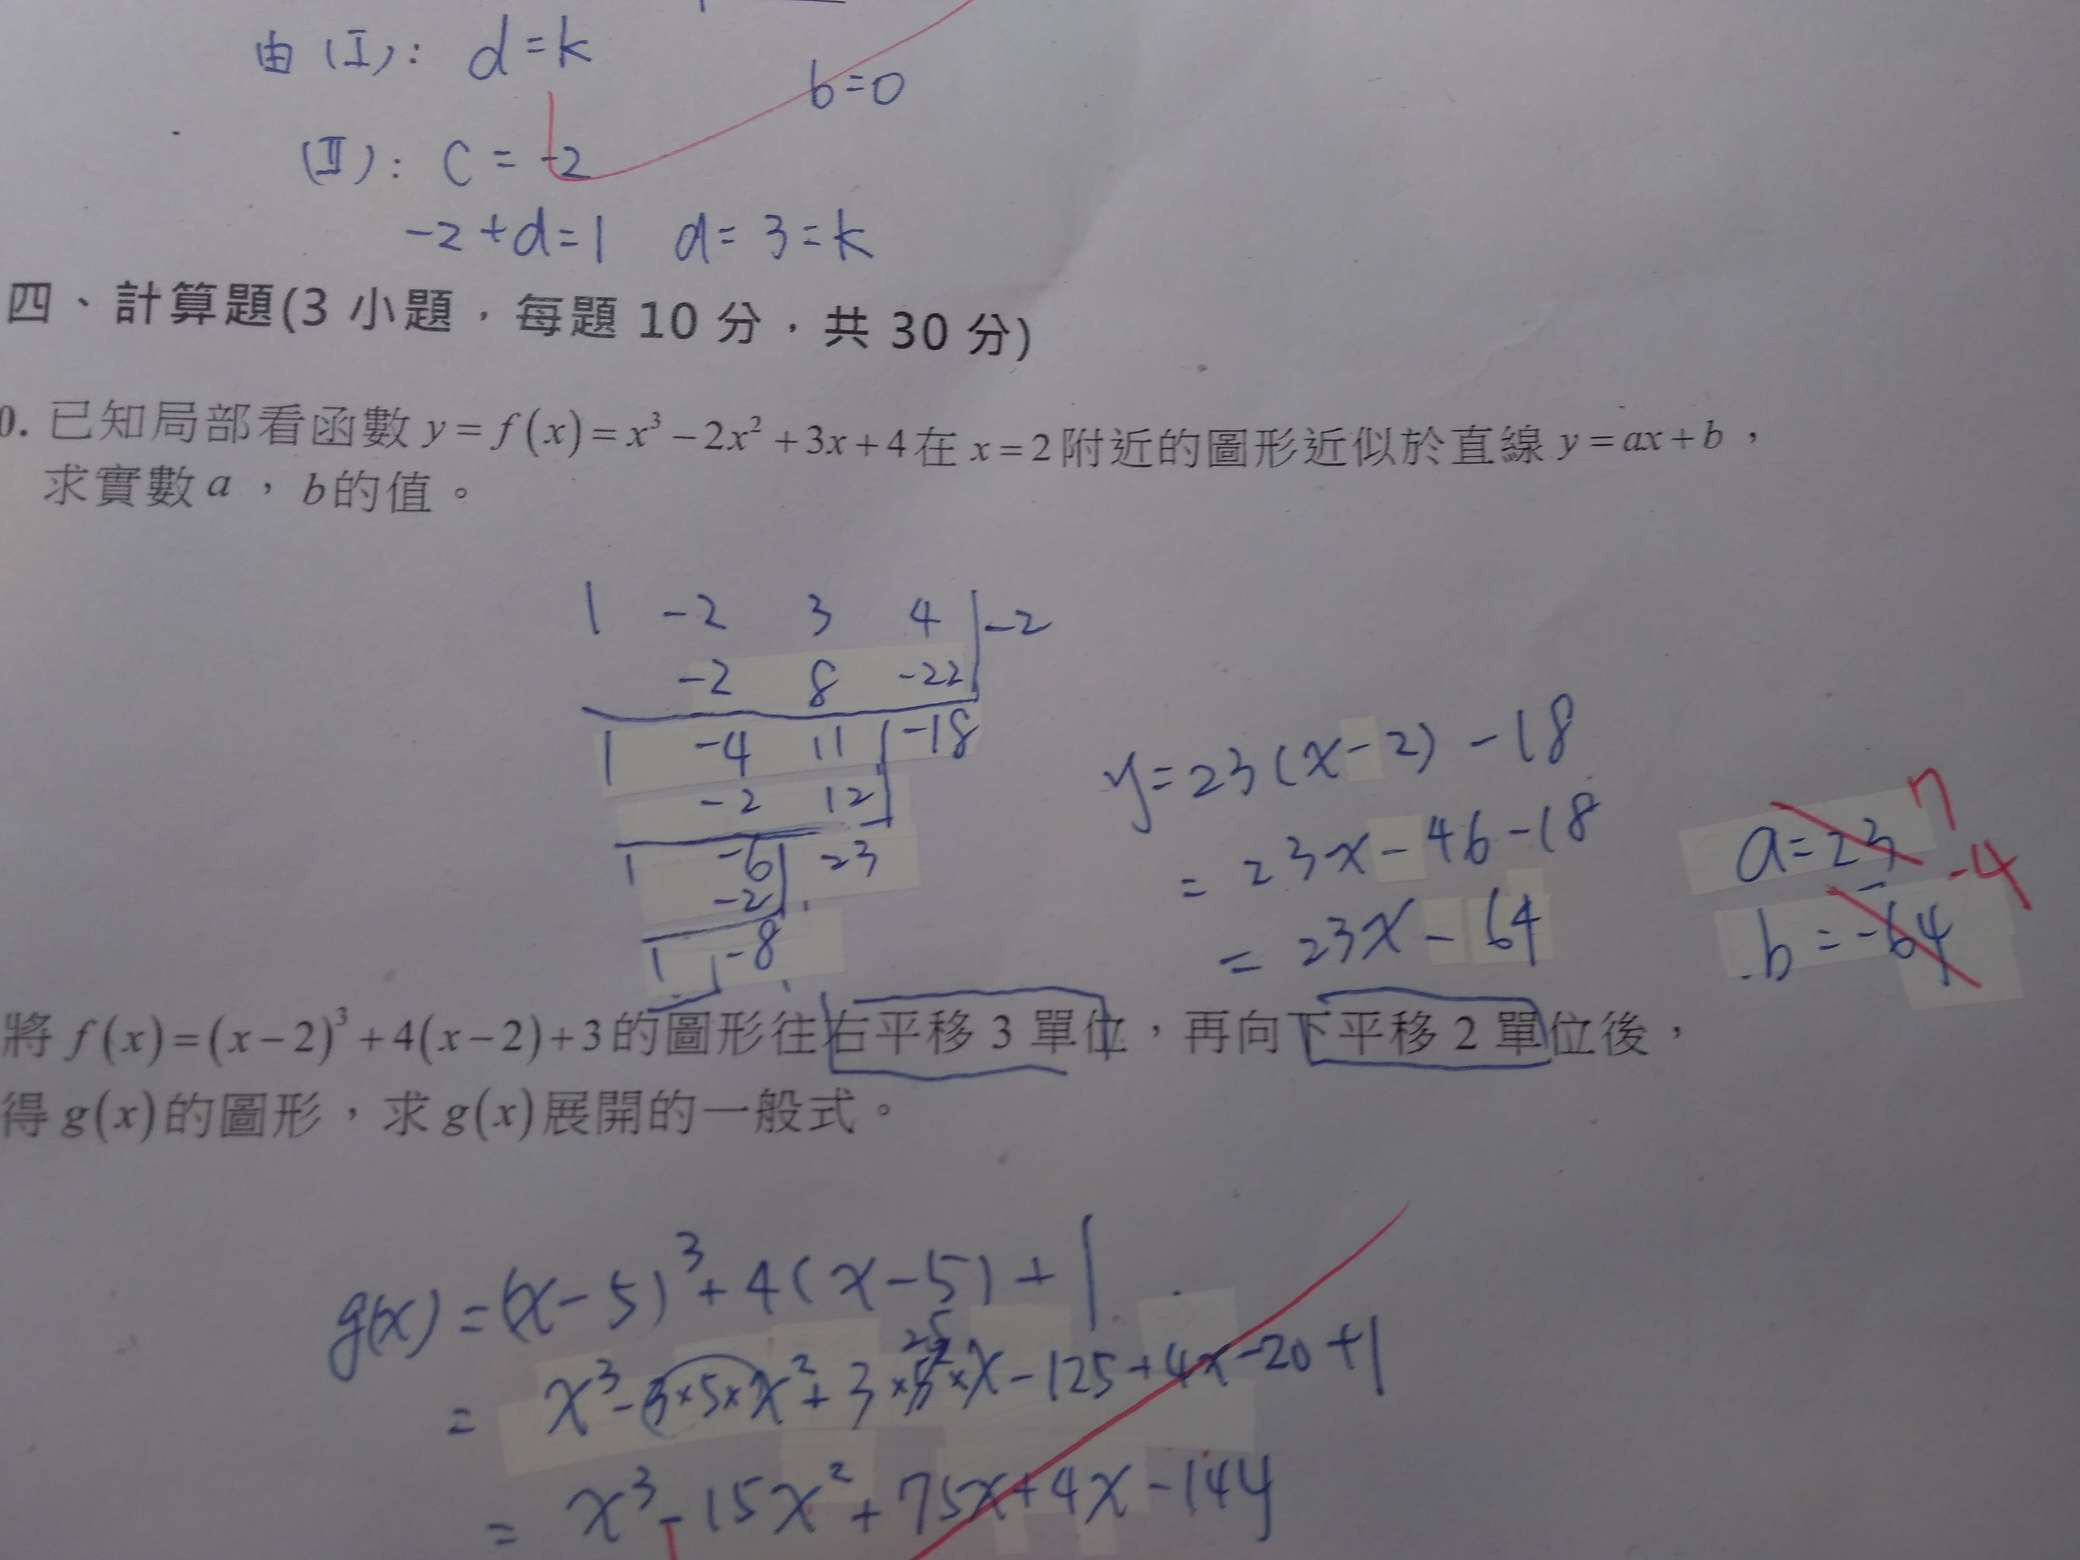 由 (I): d=k
b=0
(II): C = -2
-2+d=1 d=3=k
四、計算題(3 小題,每題 10 分,共 30 分)
0. 已知局部看函數 y=f(x)=x³-2x²+3x+4在 x=2附近的圖形近似於直線 y=ax+b,
求實數 a , b的值。
1 -2 3 4 -2
-2 8 -22
1 -4 11 -18
-2 12
1 -6 23
-2
1 -8
y=23(x-2)-18
= 23x-46-18
= 23x-64
a=23 7
b=-64 -4
將 f(x)=(x-2)³+4(x-2)+3的圖形往右平移 3 單位,再向下平移 2 單位後,
得 g(x)的圖形,求 g(x)展開的一般式。
g(x)=(x-5)³+4(x-5)+1
25
= x³-3×5×x²+3×5²×x-125+4x-20+1
= x³-15x²+75x+4x-144